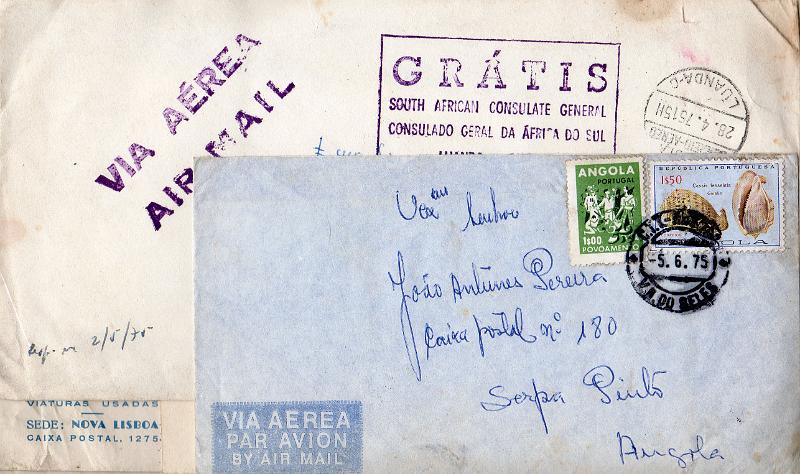 VIA AÉREA
AIR MAIL
GRÁTIS
SOUTH AFRICAN CONSULATE GENERAL
CONSULADO GERAL DA ÁFRICA DO SUL
LUANDA
28.4.75 15H
LUANDA-C
2/5/75
VIATURAS USADAS
SEDE: NOVA LISBOA
CAIXA POSTAL, 1275
ANGOLA
PORTUGAL
1$00
POVOAMENTO
REPÚBLICA PORTUGUESA
1$50
-5.6.75
Senhor
João Antúnes Pereira
Caixa postal nº 180
Serpa Pinto
Angola
VIA AEREA
PAR AVION
BY AIR MAIL